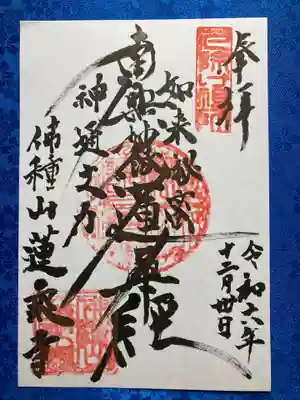 奉拝
令和六年
十二月卅日
如来秘密
南無妙法蓮華経
神通之力
佛種山蓮乗寺